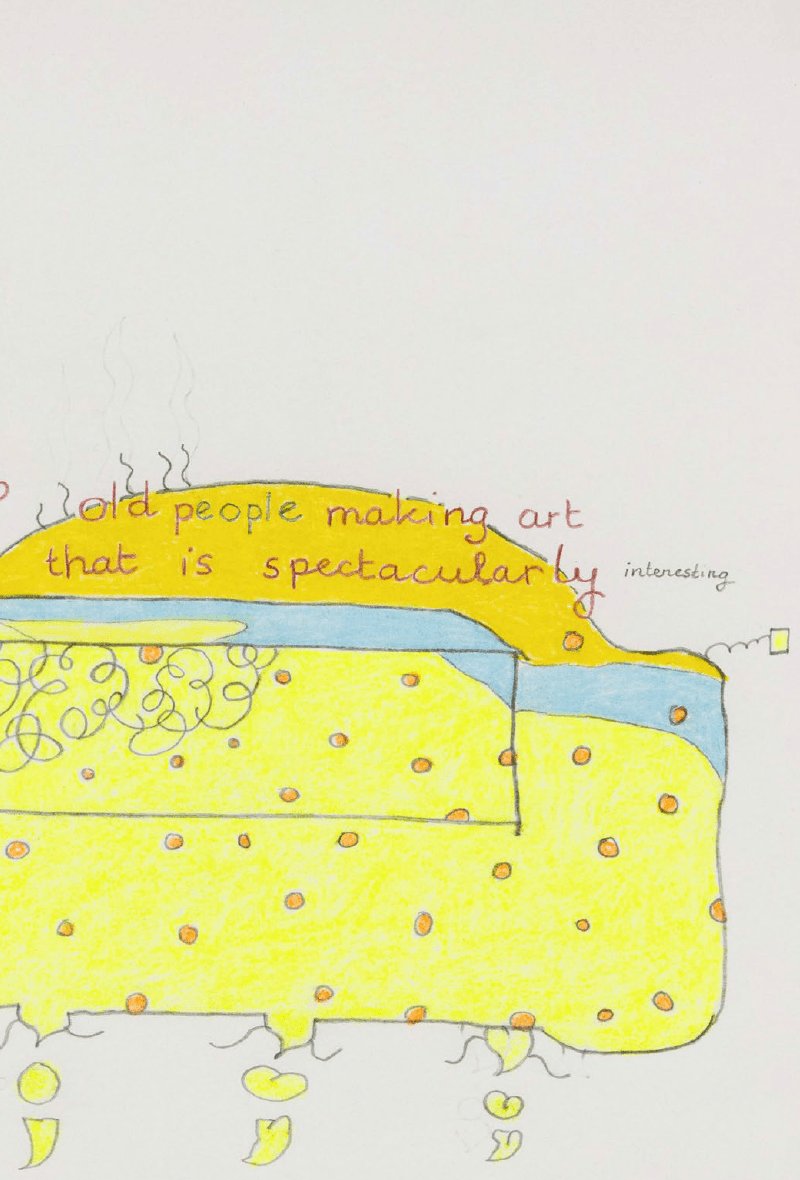 old people making art
that is spectacularly interesting